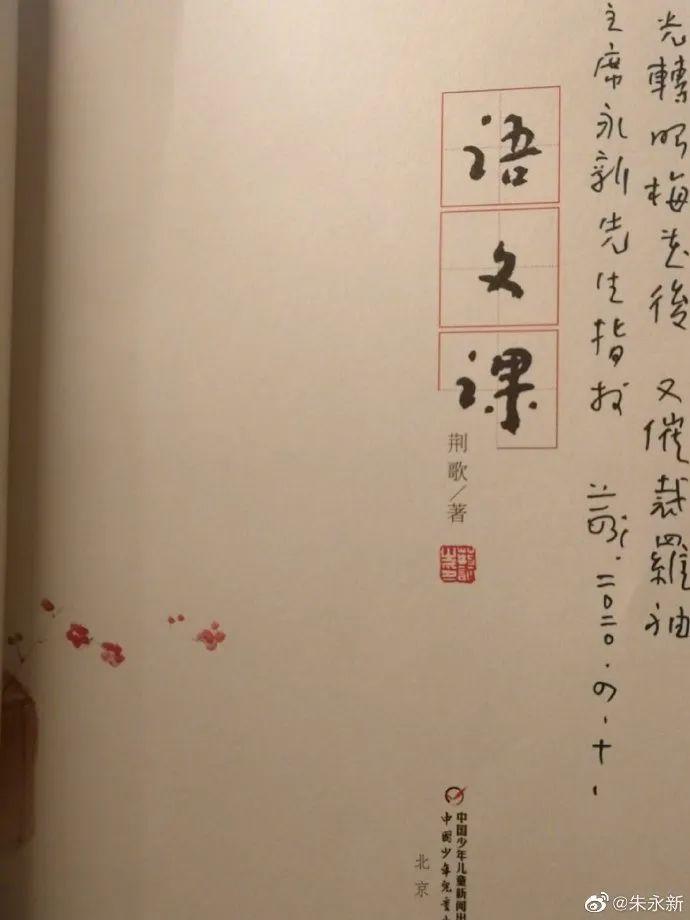 光轉眼梅花後 又催裁羅袖
主席永新先生指教
二〇二〇.四.十一
语文课
荆歌／著
中国少年儿童新闻出
中国少年儿童
北京
@朱永新